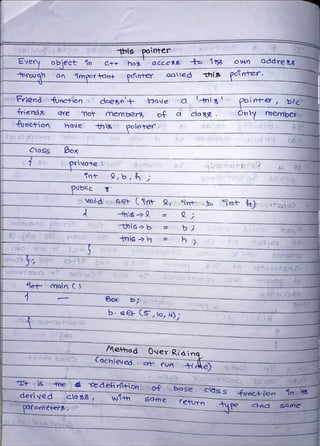 this pointer
Every object in C++ has access to its own address
through an important pointer called this pointer.
Friend function doesn't have a 'this' pointer, b/c
friends are not members of a class. Only member
function have this pointer.
Class Box
{ private :
int l, b, h ;
public :
void set (int l, int b, int h)
{ this→l = l ;
this→b = b ;
this→h = h ;
}
};
int main ()
{ Box b;
b. set (5, 10, 4);
Method Over Riding
(achieved at run time)
It is the redefinition of base class function in its
derived class, with same return type and same
parameters.